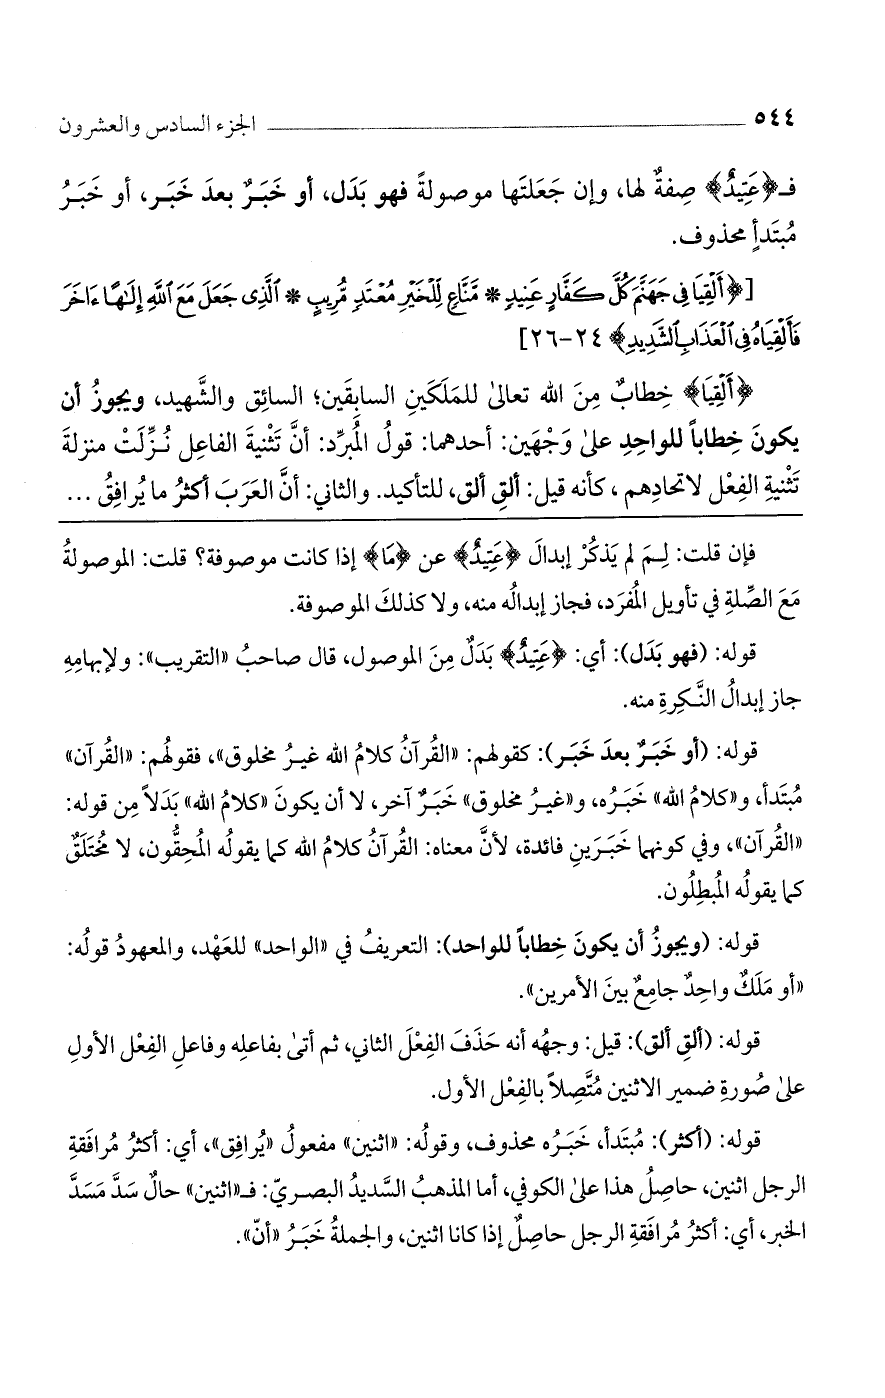 ٥٤٤ الجزء السادس والعشرون
فـ﴿عَتِيدٌ﴾ صِفةٌ لها، وإن جَعَلتَها موصولةً فهو بَدَل، أو خَبَـرٌ بعدَ خَبَـر، أو خَبَـرُ
مُبتَدأٍ محذوف.
[﴿أَلْقِيَا فِى جَهَنَّمَ كُلَّ كَفَّارٍ عَنِيدٍ * مَّنَّاعٍ لِّلْخَيْرِ مُعْتَدٍ مُّرِيبٍ * ٱلَّذِى جَعَلَ مَعَ ٱللَّهِ إِلَـٰهًا ءَاخَرَ
فَأَلْقِيَاهُ فِى ٱلْعَذَابِ ٱلشَّدِيدِ﴾ ٢٤-٢٦]
﴿أَلْقِيَا﴾ خِطابٌ مِنَ الله تعالىٰ للمَلَكَينِ السابِقَين؛ السائِق والشَّهيد، ويجوزُ أن
يكونَ خِطاباً للواحِدِ علىٰ وَجْهَين: أحدهما: قولُ المُبرِّد: أنَّ تَثْنيةَ الفاعِل نُـزِّلَتْ منزلةَ
تَثْنيةِ الفِعْل لاتحادِهم، كأنه قيل: ألقِ ألق، للتأكيد. والثاني: أنَّ العَرَبَ أكثرُ ما يُرافِقُ ...
فإن قلت: لِـمَ لم يَذكُرْ إبدالَ ﴿عَتِيدٌ﴾ عن ﴿مَا﴾ إذا كانت موصوفة؟ قلت: الموصولةُ
مَعَ الصِّلةِ في تأويل المُفرَد، فجاز إبدالُه منه، ولا كذلكَ الموصوفة.
قوله: (فهو بَدَل): أي: ﴿عَتِيدٌ﴾ بَدَلٌ مِنَ الموصول، قال صاحبُ «التقريب»: ولإبهامِهِ
جاز إبدالُ النَّـكِرةِ منه.
قوله: (أو خَبَـرٌ بعدَ خَبَـر): كقولهم: «القُرآنُ كلامُ الله غيـرُ مخلوق»، فقولُهم: «القُرآن»
مُبتَدأ، و«كلامُ الله» خَبَـرُه، و«غيـرُ مخلوق» خَبَـرٌ آخر، لا أن يكونَ «كلامُ الله» بَدَلاً مِن قوله:
«القُرآن»، وفي كونهما خَبَـرَينِ فائدة، لأنَّ معناه: القُرآنُ كلامُ الله كما يقولُه المُحِقُّون، لا مُختَلَقٌ
كما يقولُه المُبطِلُون.
قوله: (ويجوزُ أن يكونَ خِطاباً للواحد): التعريفُ في «الواحد» للعَهْد، والمعهودُ قولُه:
«أو مَلَكٌ واحِدٌ جامِعٌ بينَ الأمرين».
قوله: (ألقِ ألق): قيل: وجهُه أنه حَذَفَ الفِعْلَ الثاني، ثم أتىٰ بفاعلِه وفاعلِ الفِعْل الأولِ
علىٰ صُورةِ ضمير الاثنين مُتَّصِلاً بالفِعْل الأول.
قوله: (أكثر): مُبتَدأ، خَبَـرُه محذوف، وقولُه: «اثنين» مفعولُ «يُرافِق»، أي: أكثرُ مُرافَقةِ
الرجل اثنين، حاصِلُ هذا علىٰ الكوفي، أما المذهبُ السَّديدُ البصـريّ: فـ«اثنين» حالٌ سَدَّ مَسَدَّ
الخبر، أي: أكثرُ مُرافَقةِ الرجل حاصِلٌ إذا كانا اثنين، والجملةُ خَبَـرُ «أنّ».